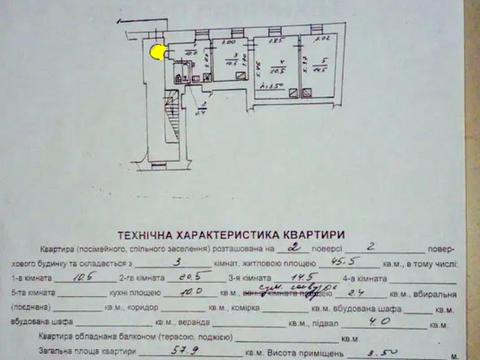 3.00
3.85
3
10.5
4
20.5
5
14.5
ТЕХНІЧНА ХАРАКТЕРИСТИКА КВАРТИРИ
Квартира (посімейного, спільного заселення) розташована на 2 поверсі 2 повер-
хового будинку та складається з 3 кімнат, житловою площею 45.5 кв.м., в тому числі:
1-а кімната 10.5 2-га кімната 20.5 3-я кімната 14.5 4-а кімната
5-та кімната кухні площею 10.0 кв.м., площею 2.4 кв.м., вбиральня
(поєднана) кв.м., коридор кв.м., комірка кв.м., вбудована шафа кв.м.,
вбудована шафа кв.м., веранда кв.м., підвал 4.0 кв.м.
Квартира обладнана балконом (терасою, лоджією) кв.м.
Загальна площа квартири 57.9 кв.м. Висота приміщень 3.50 м.